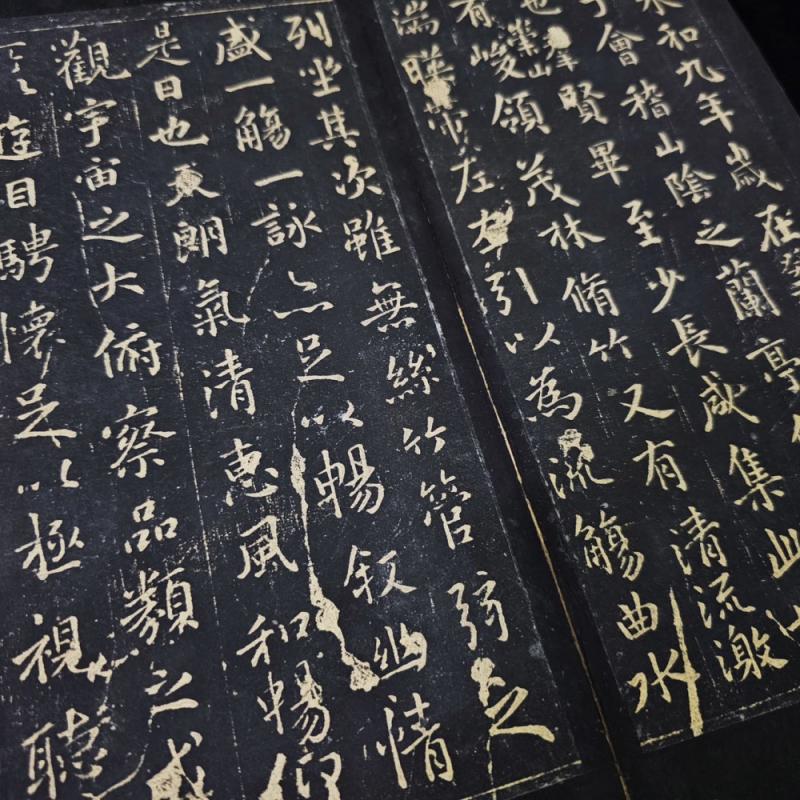 永和九年歲在癸
于會稽山陰之蘭亭
也羣賢畢至少長咸集此
有崇山峻領茂林脩竹又有清流激
湍暎帶左右引以為流觴曲水
列坐其次雖無絲竹管弦之
盛一觴一詠亦足以暢叙幽情
是日也天朗氣清惠風和暢仰
觀宇宙之大俯察品類之盛
以遊目騁懷足以極視聽